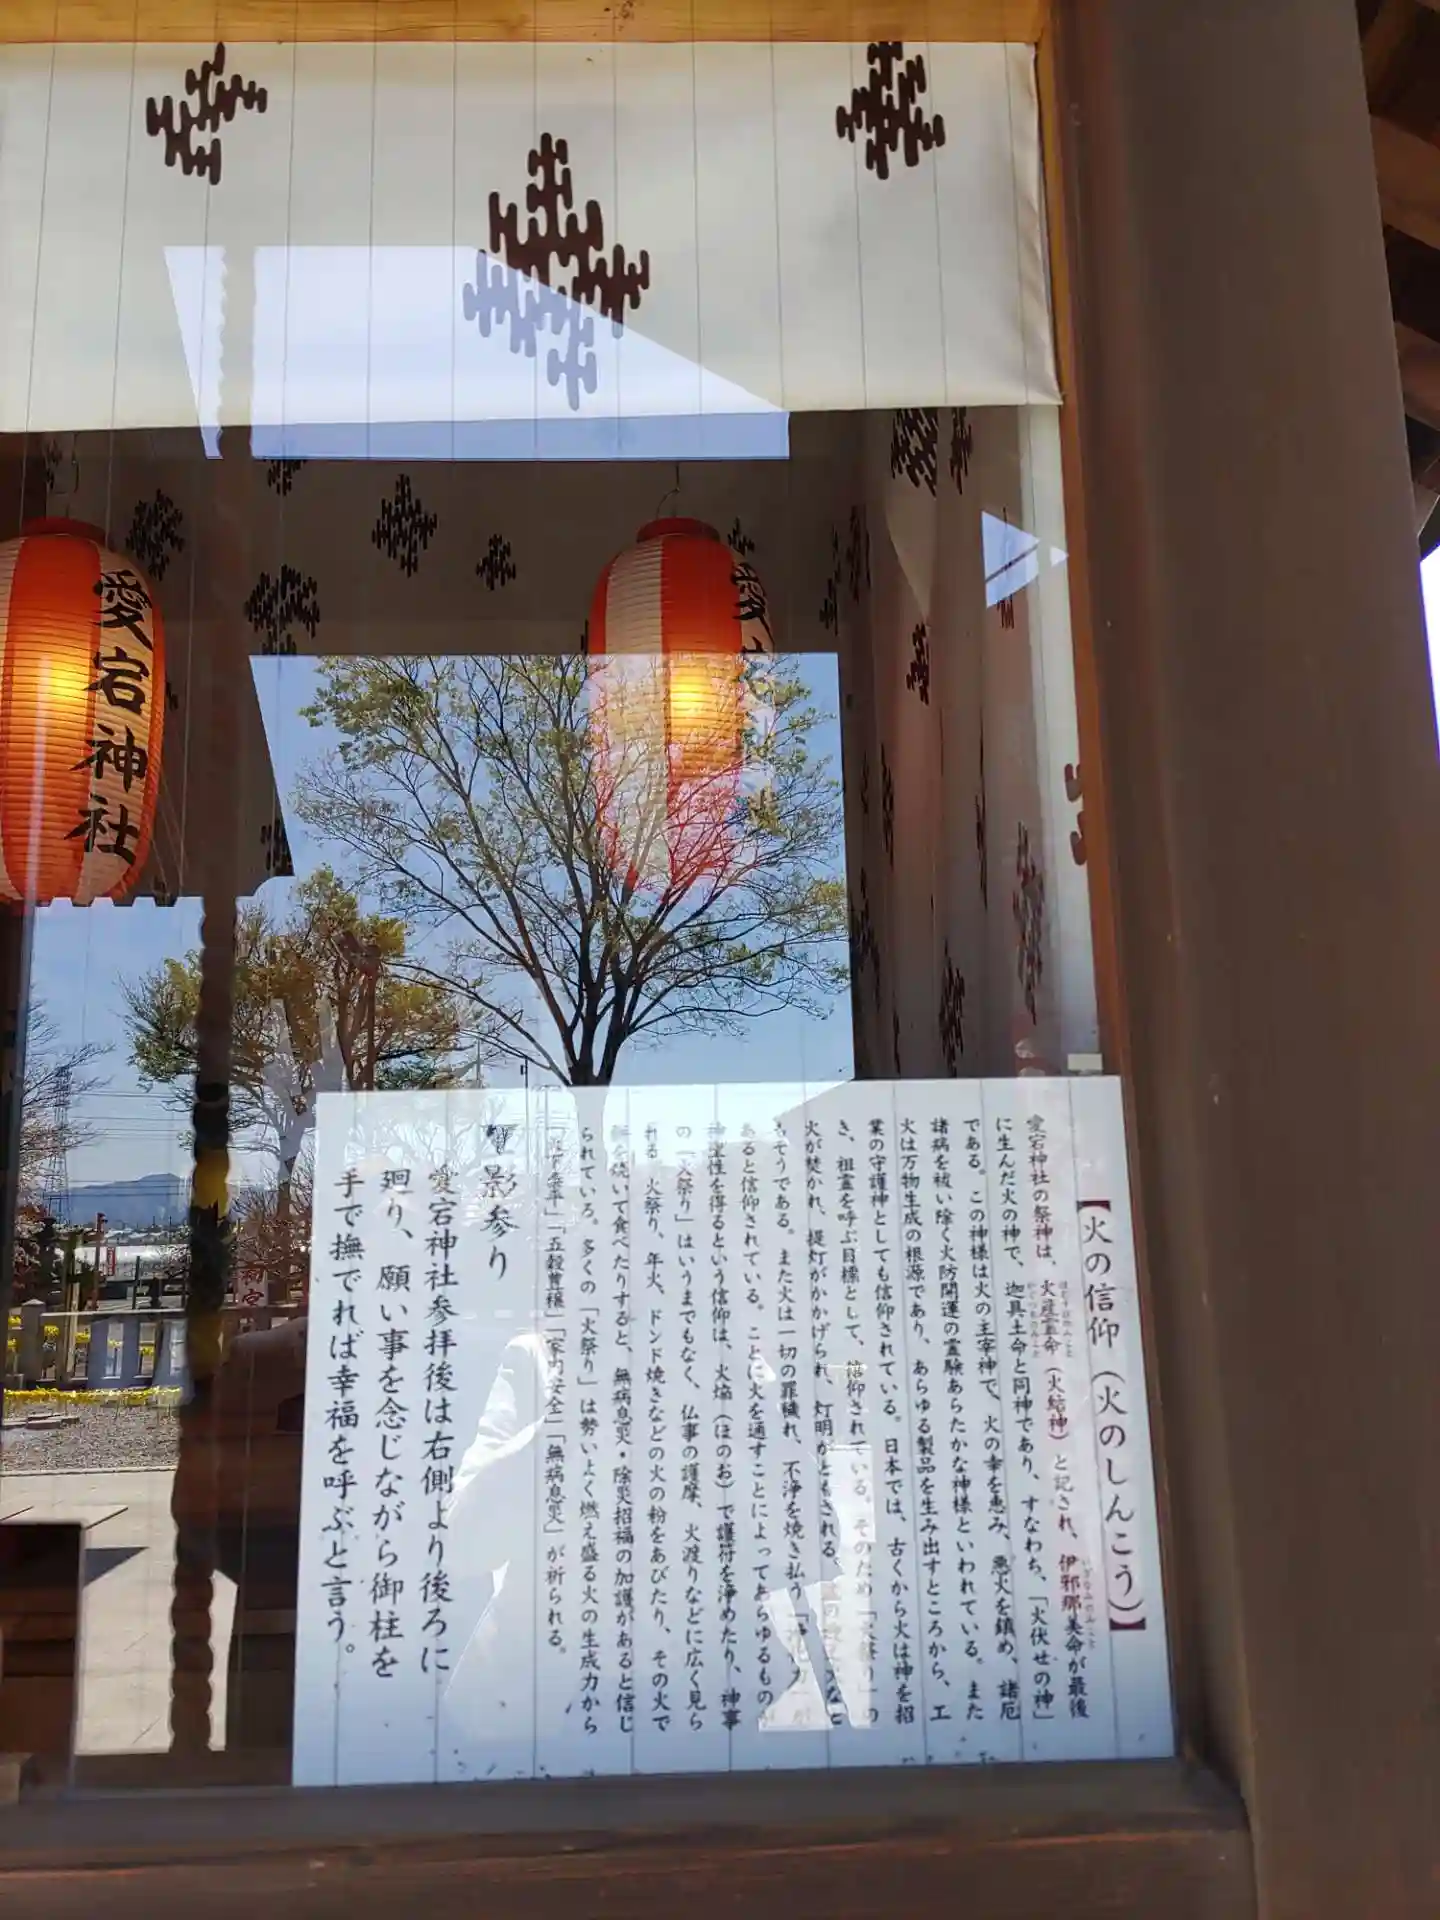 愛宕神社
愛
【火の信仰（火のしんこう）】
愛宕神社の祭神は、火産霊命（火結神）と記され、伊邪那美命が最後
に生んだ火の神で、迦具土命と同神であり、すなわち、「火伏せの神」
である。この神様は火の主宰神で、火の幸を恵み、悪火を鎮め、諸厄
諸病を祓い除く火防開運の霊験あらたかな神様といわれている。また
火は万物生成の根源であり、あらゆる製品を生み出すところから、工
業の守護神としても信仰されている。日本では、古くから火は神を招
き、祖霊を呼ぶ目標として、信仰されている。そのため「火祭り」の
火が焚かれ、提灯がかかげられ、灯明がともされる。
もそうである。また火は一切の罪穢れ、不浄を焼き払う「浄化力」が
あると信仰されている。ことに火を通すことによってあらゆるものが
神聖性を得るという信仰は、火焔（ほのお）で護符を浄めたり、神事
の「火祭り」はいうまでもなく、仏事の護摩、火渡りなどに広く見ら
れる。火祭り、年火、ドンド焼きなどの火の粉をあびたり、その火で
餅を焼いて食べたりすると、無病息災・除災招福の加護があると信じ
られている。多くの「火祭り」は勢いよく燃え盛る火の生成力から
「天下泰平」「五穀豊穣」「家内安全」「無病息災」が祈られる。
影参り
愛宕神社参拝後は右側より後ろに
廻り、願い事を念じながら御柱を
手で撫でれば幸福を呼ぶと言う。